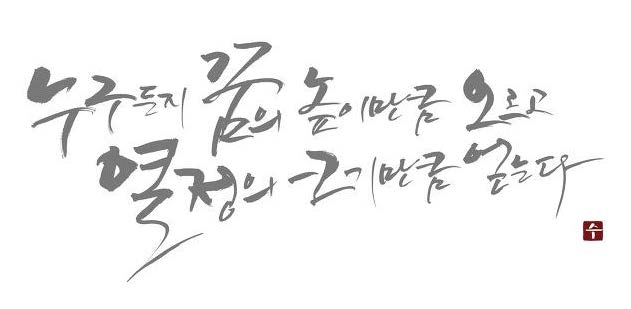 누구든지 꿈의 높이만큼 오르고
열정의 크기만큼 얻는다
수